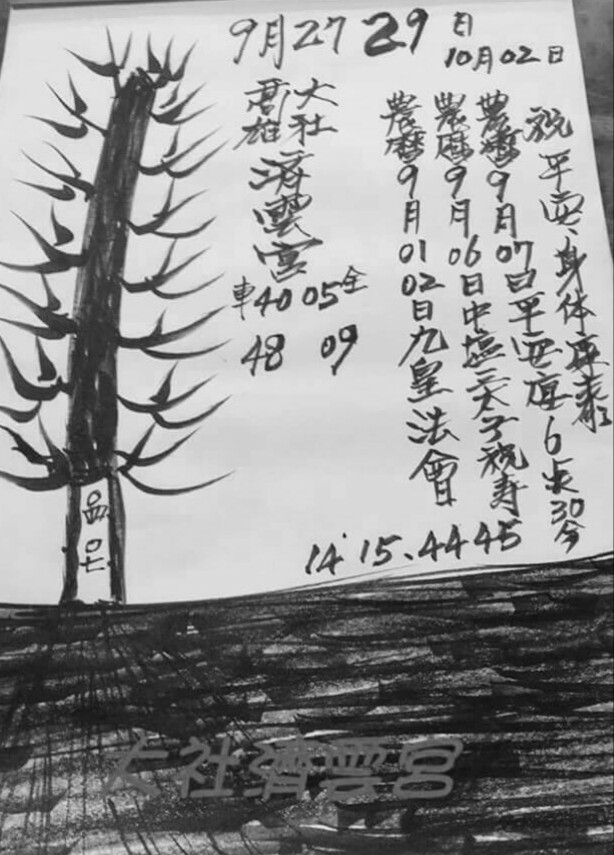 9月27 29日
10月02日
祝平安身体康泰
農曆9月07日平安宴6点30分
農曆9月06日中壇元太子祝寿
農曆9月01
02日九皇法會
大社
高雄
濟雲宮
車40 05全
48 09
14 15、44 45
大社濟雲宮